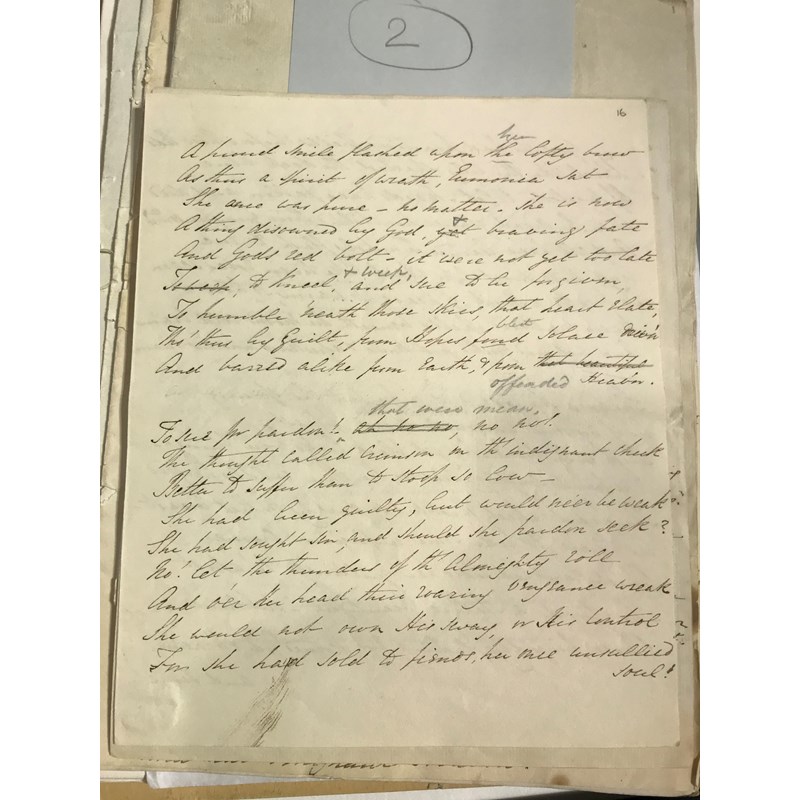 2
16
her
A proud smile flashed upon the lofty brow
As thus a spirit of wrath, Eumonia sat
She once was pure – no matter. She is now
A thing disowned by God, yet & braving fate
And Gods red bolt – it were not yet too late
& weep,
To weep, to kneel, and sue to be forgiven,
To humble 'neath those skies, that heart elate,
blest
Tho' thus by Guilt, from Hopes fond solace riv'n
And barred alike from Earth, & from that beautiful
offended Heav'n.
that were mean,
To sue for pardon! – ah no no, no no!
The thought called Crimson on th' indignant cheek
Better to suffer than to stoop so low –
She had been guilty, but would ne'er be weak
She had sought sin, and should she pardon seek?
No! let the thunders of th' Almighty roll
And o'er her head their roaring vengeance wreak
She would not own His sway, or His Control
For she had sold to fiends, her once unsullied
soul!